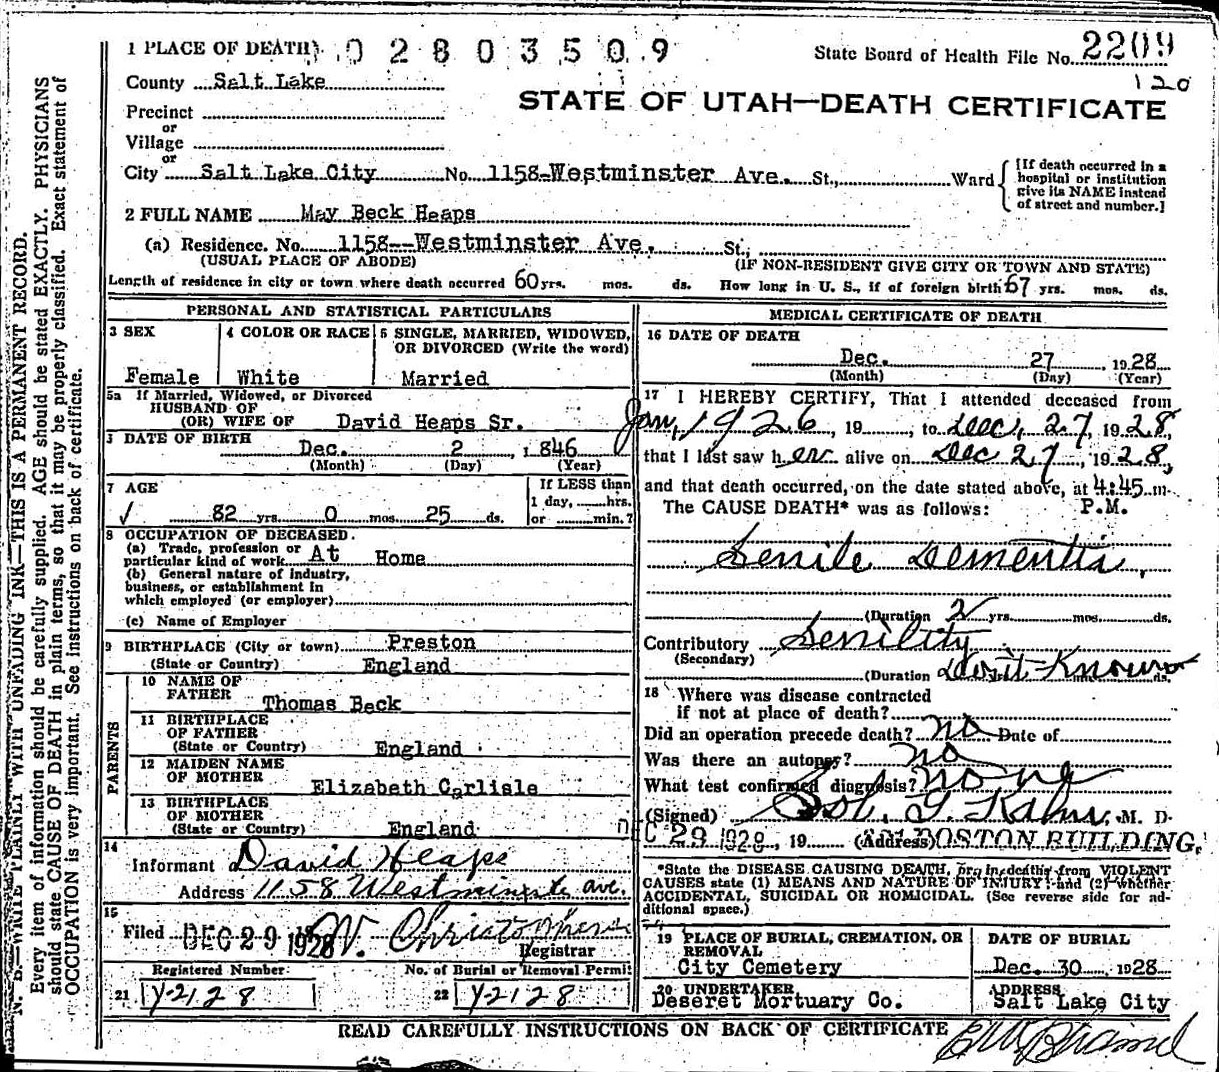 1 PLACE OF DEATH 02803509 State Board of Health File No. 2209
County Salt Lake 120
STATE OF UTAH—DEATH CERTIFICATE
Precinct
or
Village
or
City Salt Lake City No. 1158-Westminster Ave. St., Ward
[If death occurred in a
hospital or institution
give its NAME instead
of street and number.]
2 FULL NAME May Beck Heaps
(a) Residence. No. 1158--Westminster Ave. St.,
(USUAL PLACE OF ABODE) (IF NON-RESIDENT GIVE CITY OR TOWN AND STATE)
Length of residence in city or town where death occurred 60 yrs. mos. ds. How long in U. S., if of foreign birth 67 yrs. mos. ds.
PERSONAL AND STATISTICAL PARTICULARS
3 SEX
Female
4 COLOR OR RACE
White
5 SINGLE, MARRIED, WIDOWED,
OR DIVORCED (Write the word)
Married
5a If Married, Widowed, or Divorced
HUSBAND OF
(OR) WIFE OF David Heaps Sr.
DATE OF BIRTH
Dec. 2, 1846
(Month) (Day) (Year)
7 AGE
82 yrs. 0 mos. 25 ds.
If LESS than
1 day, hrs.
or min.?
8 OCCUPATION OF DECEASED.
(a) Trade, profession or
particular kind of work At Home
(b) General nature of industry,
business, or establishment in
which employed (or employer)
(c) Name of Employer
9 BIRTHPLACE (City or town) Preston
(State or Country) England
PARENTS
10 NAME OF
FATHER
Thomas Beck
11 BIRTHPLACE
OF FATHER
(State or Country) England
12 MAIDEN NAME
OF MOTHER
Elizabeth Carlisle
13 BIRTHPLACE
OF MOTHER
(State or Country) England
14
Informant David Heaps
Address 1158 Westminster ave.
15
Filed DEC 29 1928
Registrar
Registered Number
21 Y-2128
No. of Burial or Removal Permit
22 Y-2128
MEDICAL CERTIFICATE OF DEATH
16 DATE OF DEATH
Dec. 27 1928
(Month) (Day) (Year)
17 I HEREBY CERTIFY, That I attended deceased from
Jan, 1926, 19, to Dec, 27, 1928,
that I last saw her alive on Dec 27, 1928,
and that death occurred, on the date stated above, at 4:45 m.
The CAUSE DEATH* was as follows: P.M.
Senile Dementia,
(Duration 2 yrs. mos. ds.
Contributory Senility
(Secondary)
(Duration Don't Know ds.
18 Where was disease contracted
if not at place of death?
Did an operation precede death? no Date of
Was there an autopsy? no
What test confirmed diagnosis? none
(Signed) Sol. G. Kahn, M. D.
DEC 29 1928, 19 (Address) BOSTON BUILDING,
*State the DISEASE CAUSING DEATH, or, in deaths from VIOLENT
CAUSES state (1) MEANS AND NATURE OF INJURY and (2) whether
ACCIDENTAL, SUICIDAL OR HOMICIDAL. (See reverse side for ad-
ditional space.)
19 PLACE OF BURIAL, CREMATION, OR
REMOVAL
City Cemetery
DATE OF BURIAL
Dec. 30, 1928
20 UNDERTAKER
Deseret Mortuary Co.
ADDRESS
Salt Lake City
READ CAREFULLY INSTRUCTIONS ON BACK OF CERTIFICATE
N. B.—WRITE PLAINLY WITH UNFADING INK—THIS IS A PERMANENT RECORD.
Every item of information should be carefully supplied. AGE should be stated EXACTLY. PHYSICIANS
should state CAUSE OF DEATH in plain terms, so that it may be properly classified. Exact statement of
OCCUPATION is very important. See instructions on back of certificate.